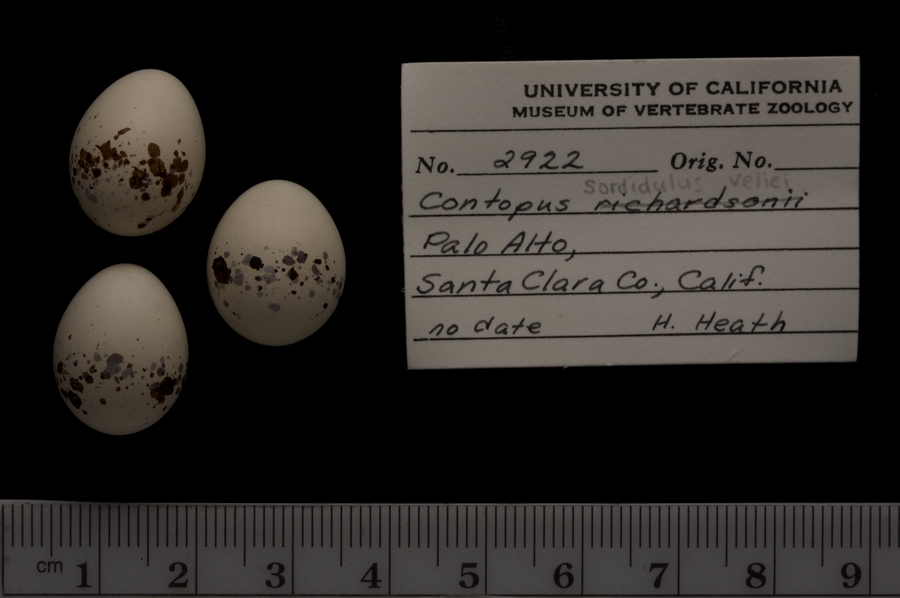 UNIVERSITY OF CALIFORNIA
MUSEUM OF VERTEBRATE ZOOLOGY
No. 2922 Orig. No.
sordidulus veliei
Contopus richardsonii
Palo Alto,
Santa Clara Co., Calif.
no date H. Heath
cm 1 2 3 4 5 6 7 8 9